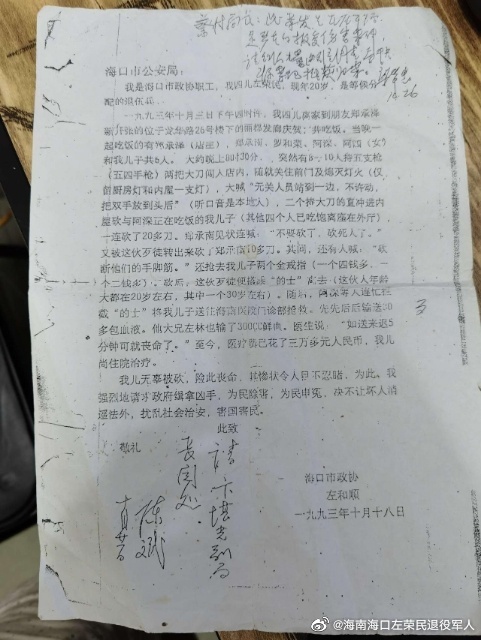 海口市公安局：
我是海口市政协职工，我四儿左荣民，现年20岁，是等候分
配的退伍兵。
一九九三年十月三日下午四时许，我四儿离家到朋友郑承海
新开张的位于龙华路26号楼下的丽祥发廊庆贺，共吃饭。当晚一
起吃饭的有郑承海（店主）、郑承南、罗和荣、阿深、阿西（女）
和我儿子共6人。大约晚上8时30分，突然有8-10人持五支枪
（五四手枪）两把大刀闯入店内，随就关住前门及熄灭灯火（仅
留厨房灯和内屋一支灯），大喊“无关人员站到一边，不许动，
把双手放到头后”（听口音是本地人），二个持大刀的直冲进内
屋砍与阿深正在吃饭的我儿子（其他四个人已吃饱离座在外厅）
一连砍了20多刀。郑承南见状连喊：“不要砍了，砍死人了。”
又被这伙歹徒转出来砍了郑承南10多刀。其间，还有人喊：“砍
断他们的手脚筋。”还抢去我儿子两个金戒指（一个四钱多，一
个二钱多）。砍后，这伙歹徒便搭乘“的士”离去（这伙人年龄
大都在20岁左右，其中一个30岁左右）。随后，阿深等人连忙拦
截“的士”将我儿子送往海南医院门诊部抢救。先先后后输送30
多包血液。他大兄左林也输了300CC鲜血。医生说：“如送来迟5
分钟可就丧命了。”至今，医疗费已花了三万多元人民币，我儿
尚住院治疗。
我儿无辜被砍，险此丧命，其惨状令人目不忍睹，为此，我
强烈地请求政府缉拿凶手，为民除害，为民申冤，决不让坏人逍
遥法外，扰乱社会治安，害国害民。
此致
敬礼
海口市政协
左和顺
一九九三年十月十八日
@海南海口左荣民退役军人